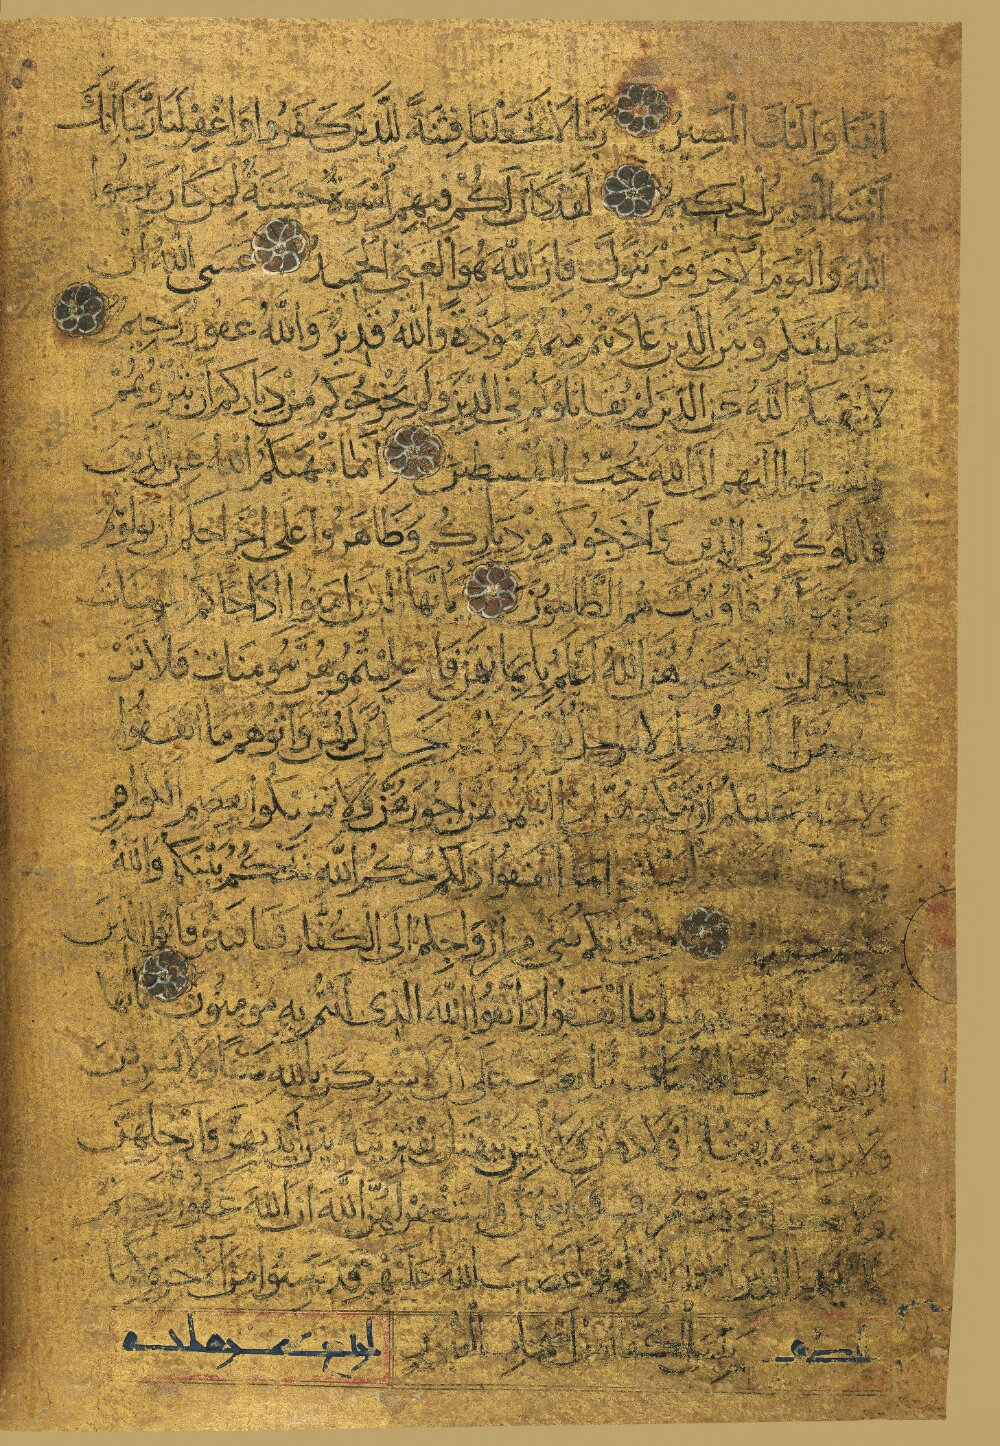 انبنا واليك المصير ربنا لا تجعلنا فتنة للذين كفروا واغفر لنا ربنا انك
انت العزيز الحكيم لقد كان لكم فيهم اسوة حسنة لمن كان يرجوا
الله واليوم الآخر ومن يتول فان الله هو الغني الحميد عسى الله ان
يجعل بينكم وبين الذين عاديتم منهم مودة والله قدير والله غفور رحيم
لا ينهيكم الله عن الذين لم يقاتلوكم في الدين ولم يخرجوكم من دياركم ان تبروهم
وتقسطوا اليهم ان الله يحب المقسطين انما ينهيكم الله عن الذين
قاتلوكم في الدين واخرجوكم من دياركم وظاهروا على اخراجكم ان تولوهم
ومن يتولهم فاولئك هم الظالمون يا ايها الذين امنوا اذا جاكم المومنات
مهاجرات فامتحنوهن الله اعلم بايمانهن فان علمتموهن مومنات فلا تر
جعوهن الى الكفار لا هن حل لهم ولا هم يحلون لهن واتوهم ما انفقوا
ولا جناح عليكم ان تنكحوهن اذا اتيتموهن اجورهن ولا تمسكوا بعصم الكوافر
ما انفقوا ذلكم حكم الله يحكم بينكم والله
عليم حكيم وان فاتكم شي من ازواجكم الى الكفار فعاقبتم فاتوا الذين
ذهبت ازواجهم مثل ما انفقوا واتقوا الله الذي انتم به مومنون يا ايها
النبي اذا جاك المومنات يبايعنك على ان لا يشركن بالله شيئا ولا يسرقن
ولا يزنين ولا يقتلن اولادهن ولا ياتين ببهتان يفترينه بين ايديهن وارجلهن
ولا يعصينك في معروف فبايعهن واستغفر لهن الله ان الله غفور رحيم
يا ايها الذين امنوا لا تتولوا قوما غضب الله عليهم قد يئسوا من الاخرة كما
يئس الكفار من اصحاب القبور